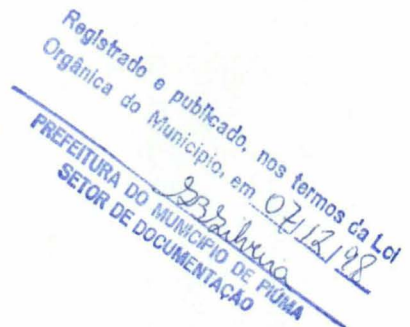 Registrado e publicado, nos termos da Lei
Orgânica do Município, em 07/12/98
PREFEITURA DO MUNICÍPIO DE PIÚMA
SETOR DE DOCUMENTAÇÃO